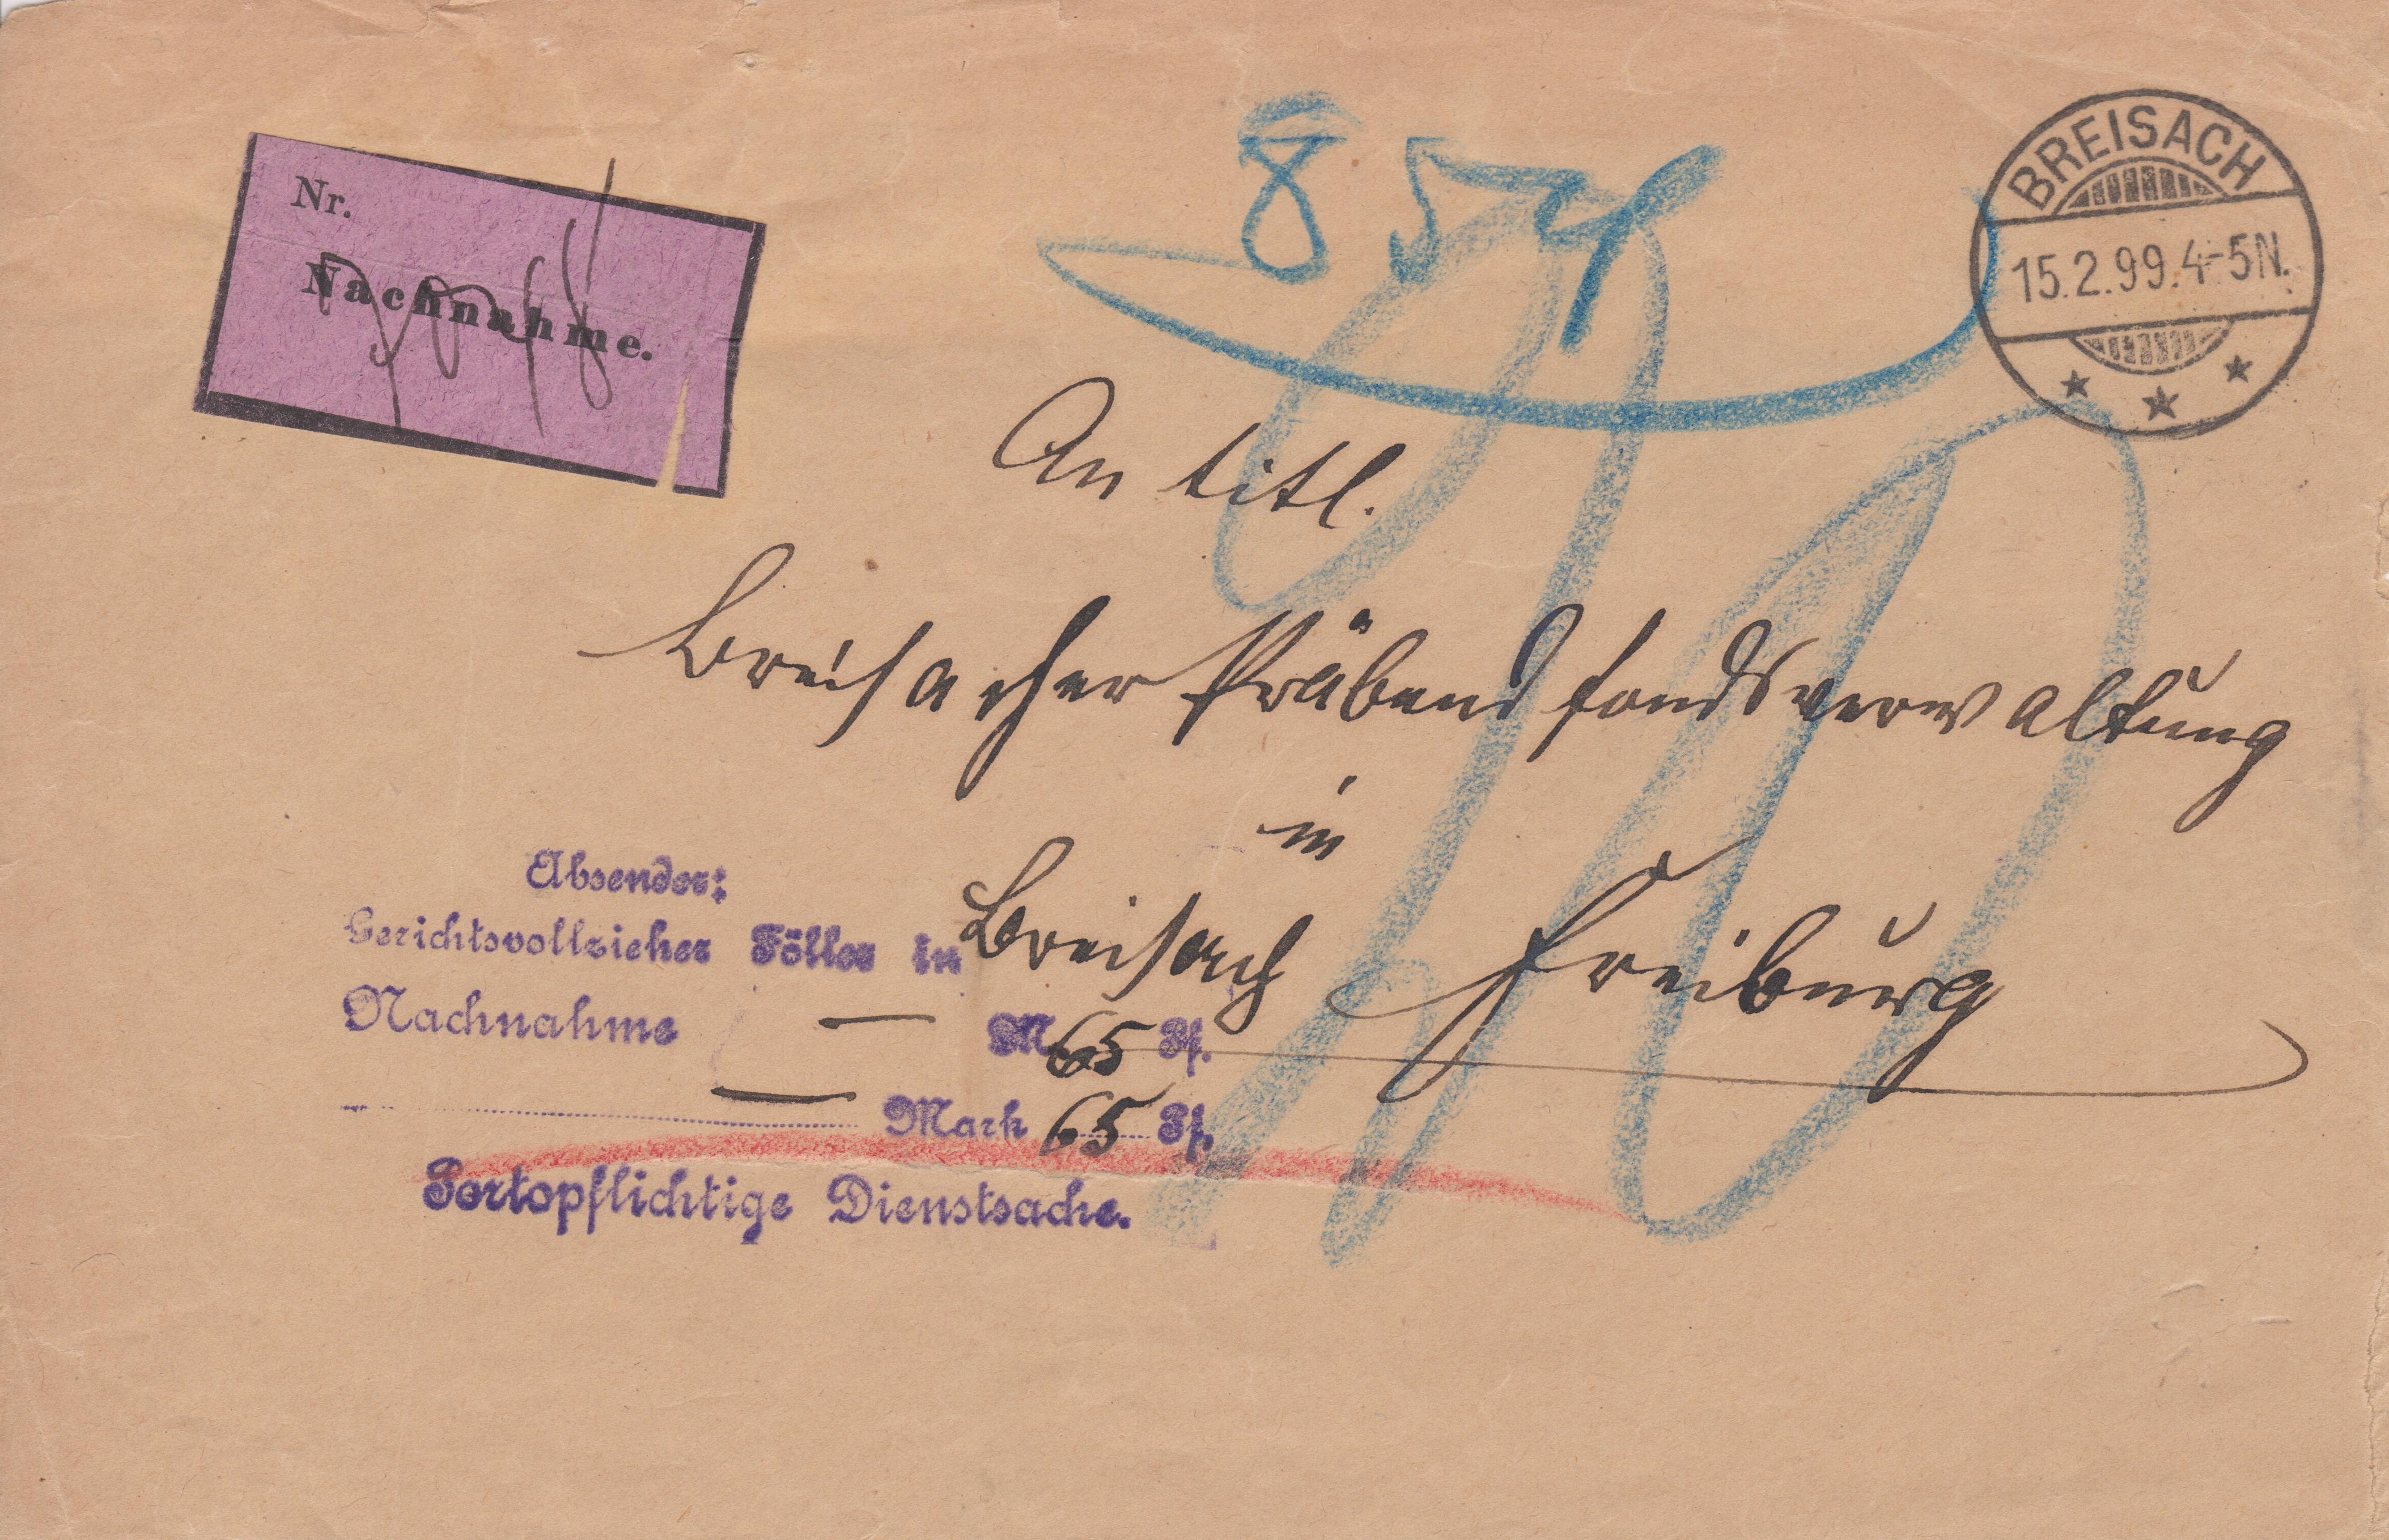 Nr.
Nachnahme.
85
BREISACH
15.2.99.4-5N.
An titl.
Breisacher Präbendfondsverwaltung
in
Freiburg
Absender:
Gerichtsvollzieher Föller in Breisach
Nachnahme — M 65 Pf.
— Mark 65 Pf.
Portopflichtige Dienstsache.